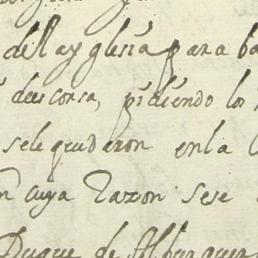 del ayglesia para ba
descorsa, pidiendo los
sele quedaron en la
cuya Razon sese
Duque de Alburquer